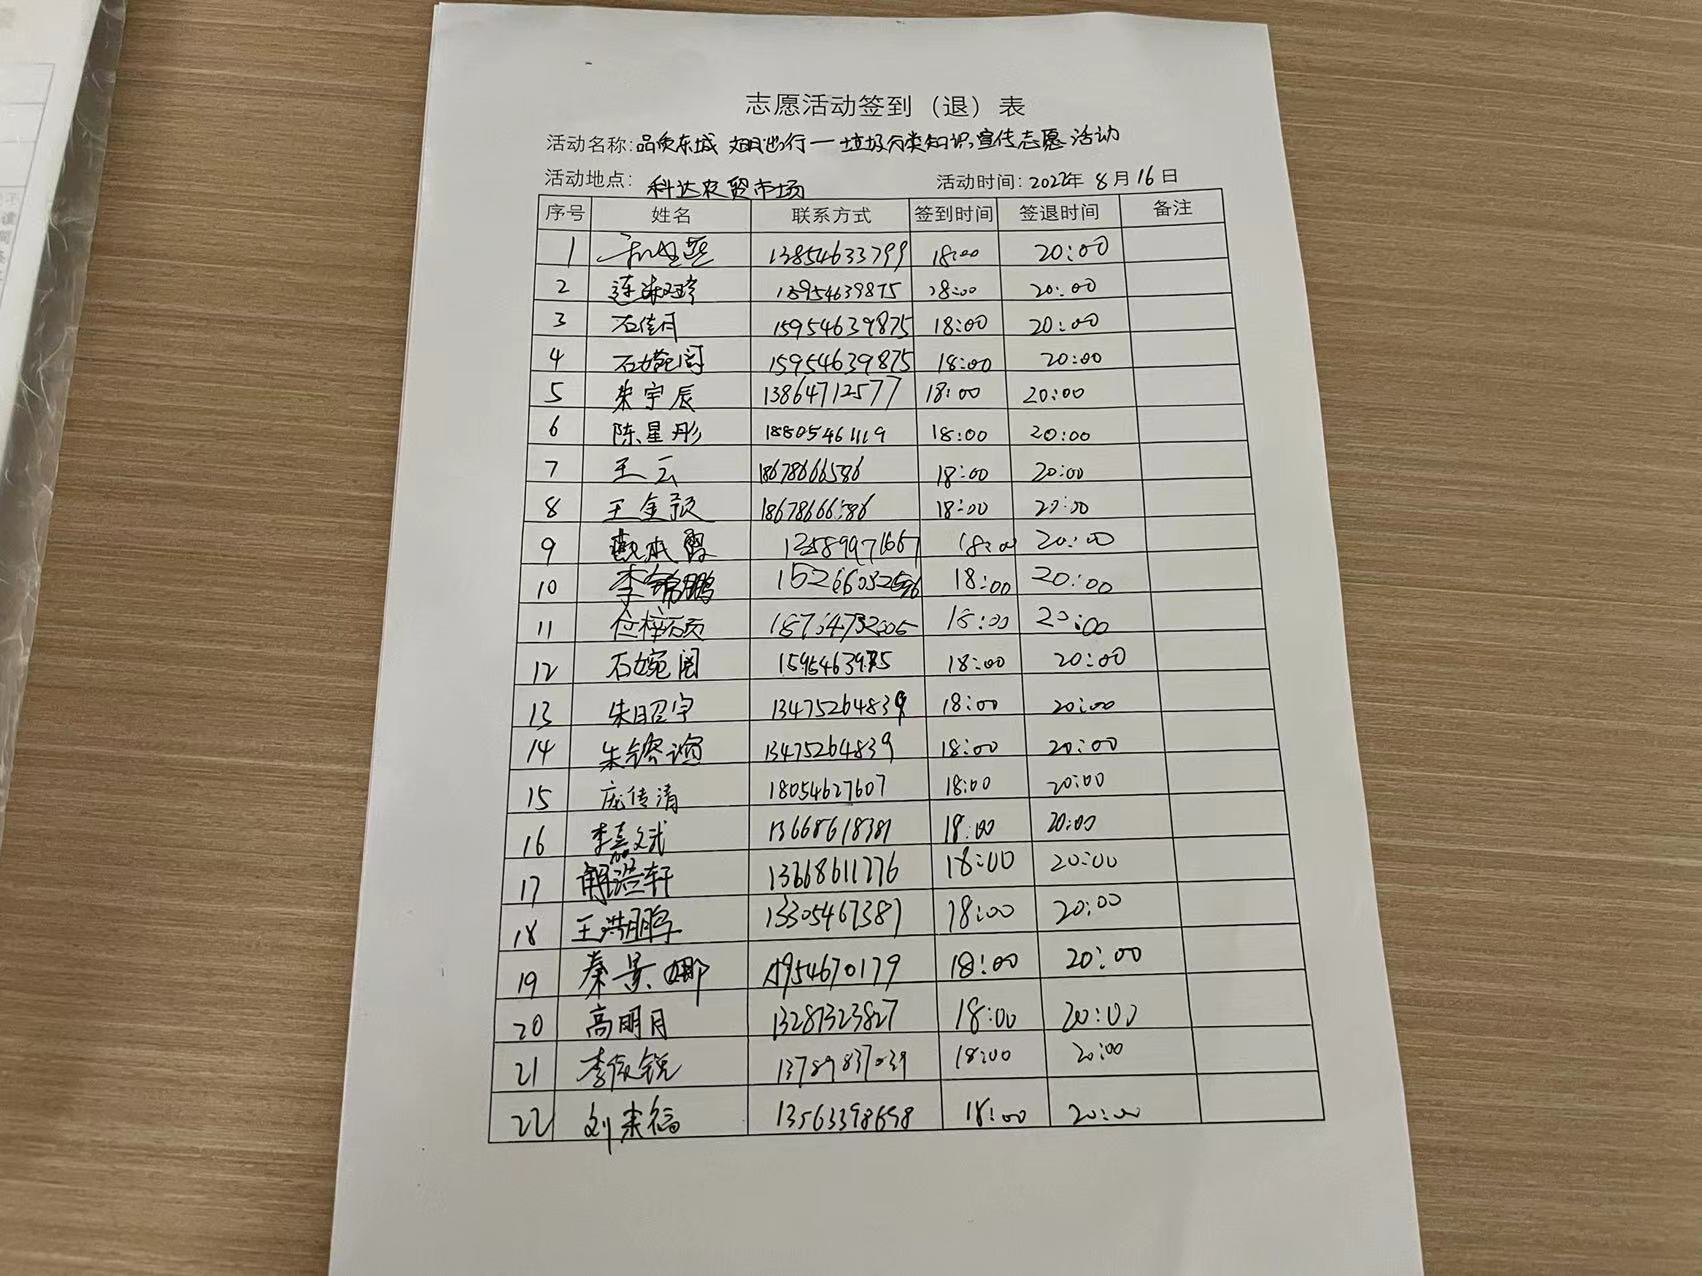 志愿活动签到（退）表
活动名称:品质东城 文明出行一垃圾分类知识宣传志愿活动
活动地点: 科达农贸市场 活动时间:2022年8月16日
序号 姓名 联系方式 签到时间 签退时间 备注
1 13854633799 18:00 20:00
2 15954639875 18:00 20:00
3 石倩月 15954639875 18:00 20:00
4 石婉阁 15954639875 18:00 20:00
5 朱宇辰 13864712577 18:00 20:00
6 陈星彤 18805461119 18:00 20:00
7 王云 18678666586 18:00 20:00
8 王金颖 18678666586 18:00 20:00
9 18:00 20:00
10 李锦鹏 18:00 20:00
11 位梓硕 18764732005 18:00 20:00
12 石婉阁 18:00 20:00
13 朱昭宇 13475264839 18:00 20:00
14 朱镕谊 13475264839 18:00 20:00
15 庞传清 18054627607 18:00 20:00
16 李嘉斌 13668618381 18:00 20:00
17 解浩轩 13668611776 18:00 20:00
18 王浩鹏 13305467387 18:00 20:00
19 秦景娜 15954670179 18:00 20:00
20 高明月 13287323827 18:00 20:00
21 李俊锐 13789837039 18:00 20:00
22 刘来福 13563398698 18:00 20:00